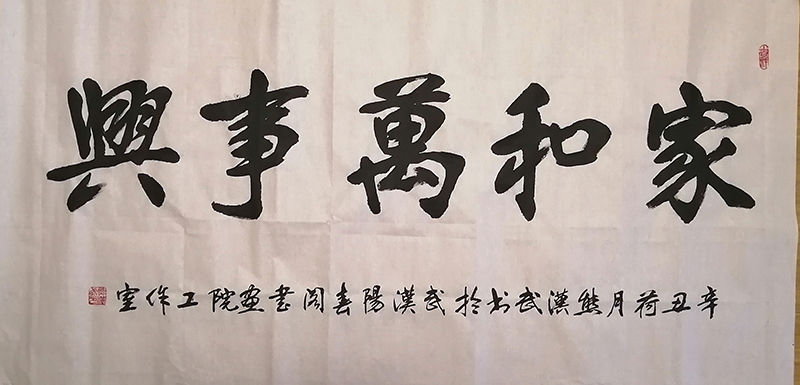 家和萬事興
辛丑荷月熊漢武书於武漢陽春阁書畫院工作室